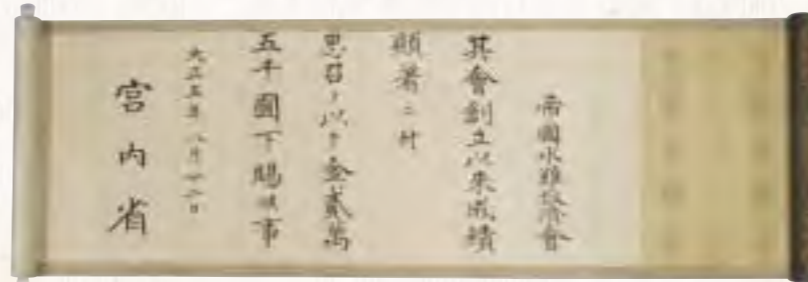 帝國水難救濟會
其會創立以来成績
顕著ニ付
思召ヲ以テ金貳萬
五千圓下賜候事
大正五年八月廿二日
宮内省